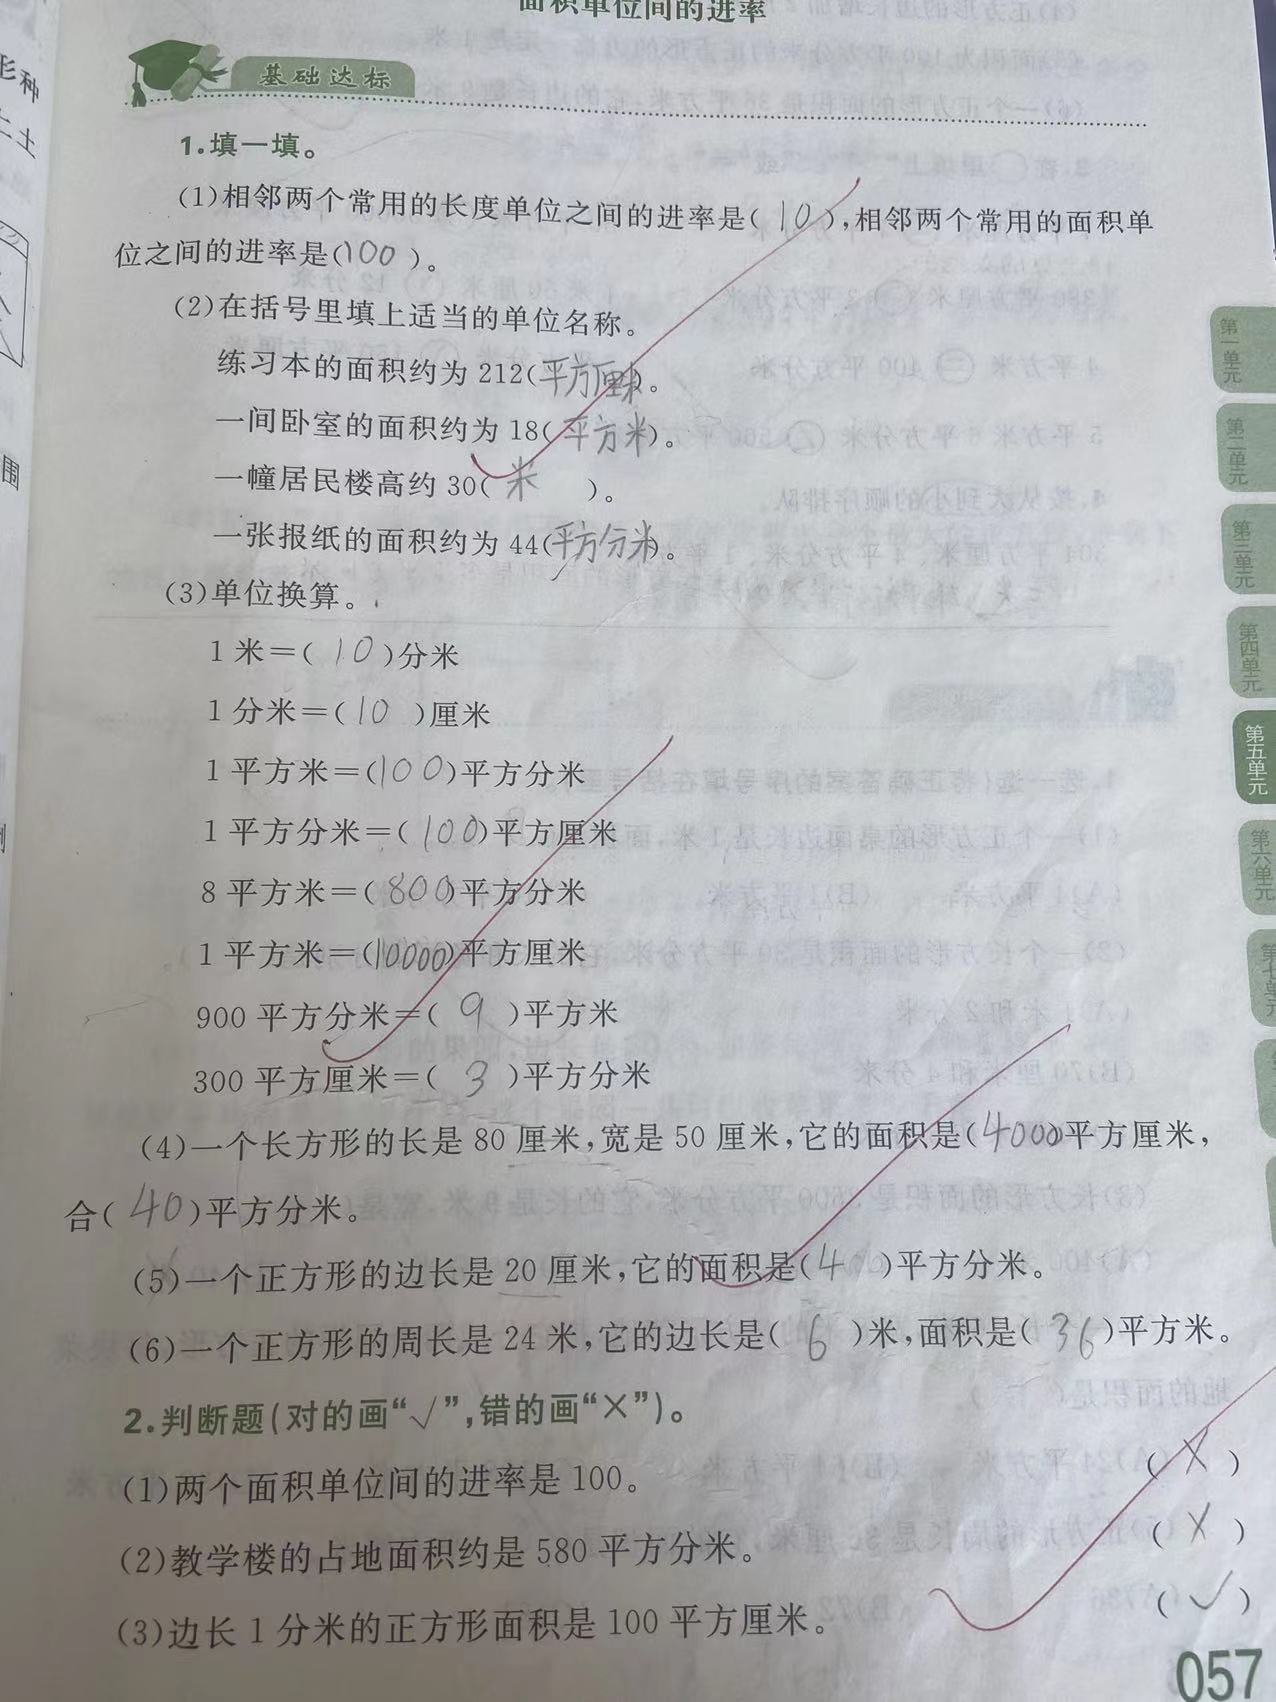 面积单位间的进率
基础达标
1.填一填。
(1)相邻两个常用的长度单位之间的进率是(10),相邻两个常用的面积单
位之间的进率是(100)。
(2)在括号里填上适当的单位名称。
练习本的面积约为212(平方厘米)。
一间卧室的面积约为18(平方米)。
一幢居民楼高约30(米)。
一张报纸的面积约为44(平方分米)。
(3)单位换算。
1米=(10)分米
1分米=(10)厘米
1平方米=(100)平方分米
1平方分米=(100)平方厘米
8平方米=(800)平方分米
1平方米=(10000)平方厘米
900平方分米=(9)平方米
300平方厘米=(3)平方分米
(4)一个长方形的长是80厘米,宽是50厘米,它的面积是(4000)平方厘米,
合(40)平方分米。
(5)一个正方形的边长是20厘米,它的面积是(4)平方分米。
(6)一个正方形的周长是24米,它的边长是(6)米,面积是(36)平方米。
2.判断题(对的画“√”,错的画“×”)。
(1)两个面积单位间的进率是100。 (×)
(2)教学楼的占地面积约是580平方分米。 (×)
(3)边长1分米的正方形面积是100平方厘米。 (√)
057
第一单元
第二单元
第三单元
第四单元
第五单元
第六单元
第七单元
形种
土
围